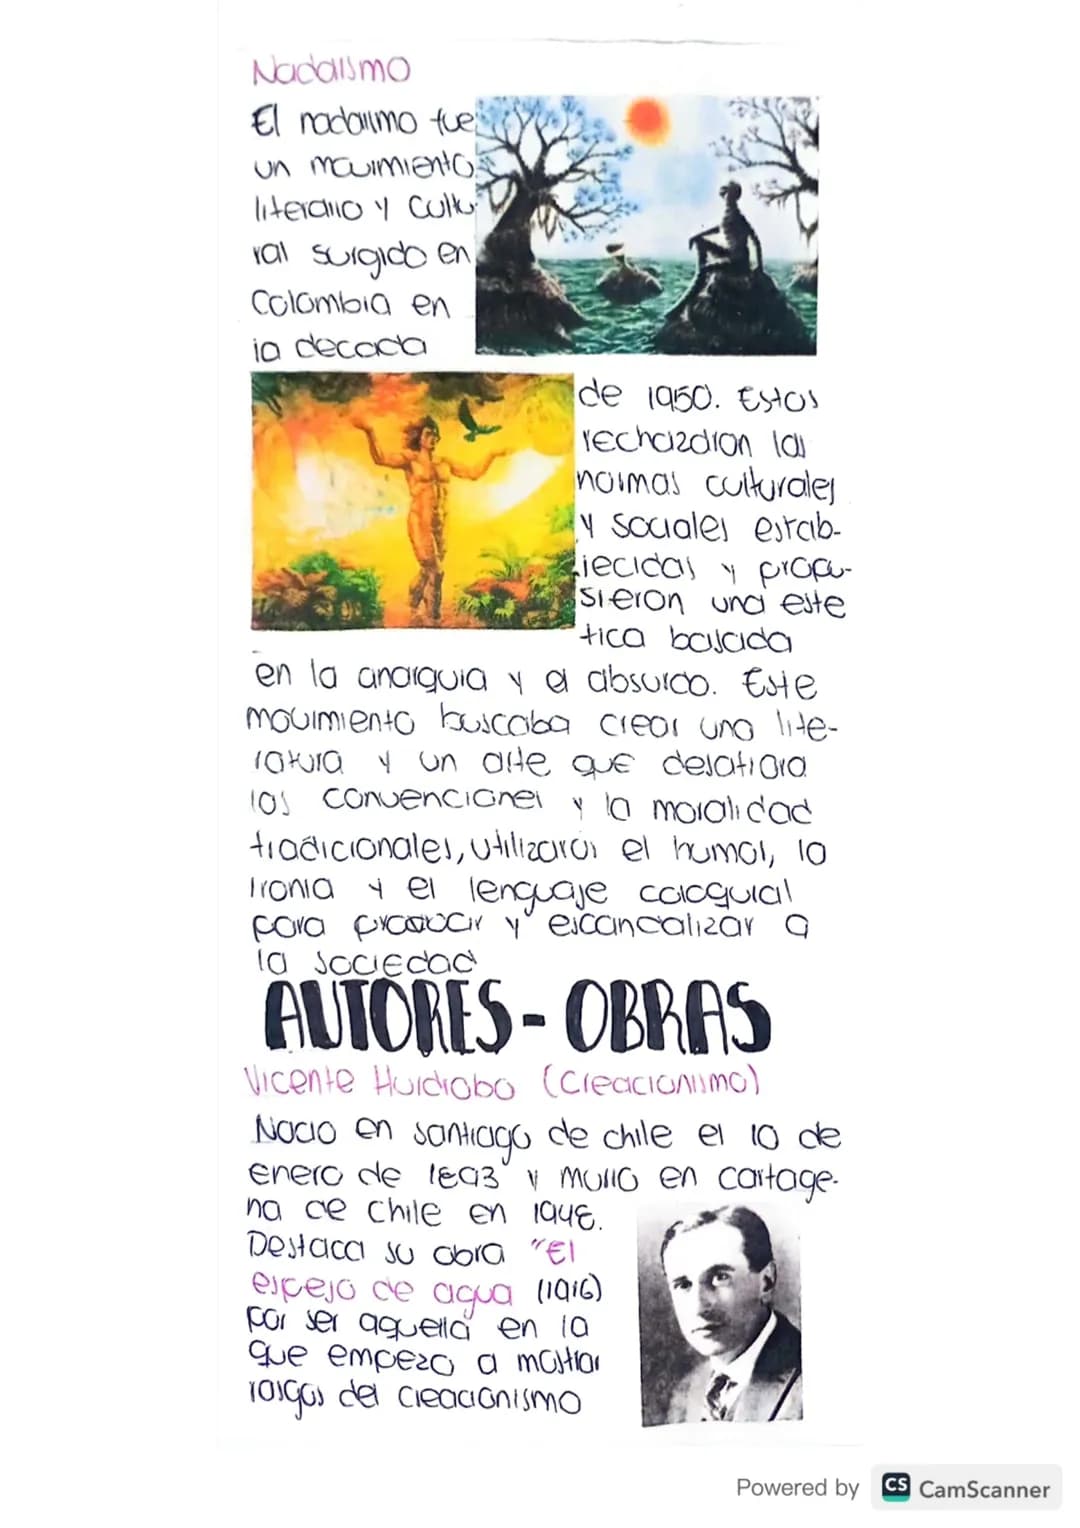 Nadaismo
El nadaimo fue
un movimiento
literario y cultu
ral surgido en
Colombia en
la decada
de 1950. Estos
rechazaron las
normas culturales
y sociales estab-
lecidas y propu-
sieron una este
tica basada
en la anarquia y el absurdo. Este
movimiento buscaba crear una lite-
ratura y un arte que desafiara
las convenciones y la moralidad
tradicionales, utilizaron el humor, la
Ironia y el lenguaje coloquial
para provocar y escandalizar a
la sociedad
AUTORES - OBRAS
Vicente Huidrobo (Creacionismo)
Nacio en santiago de chile el 10 de
enero de 1893 y murio en cartage-
na de chile en 1948.
Destaca su obra "El
espejo de agua (1916)
por ser aquella en la
que empezo a mostrar
rasgos del creacionismo
Powered by CS CamScanner